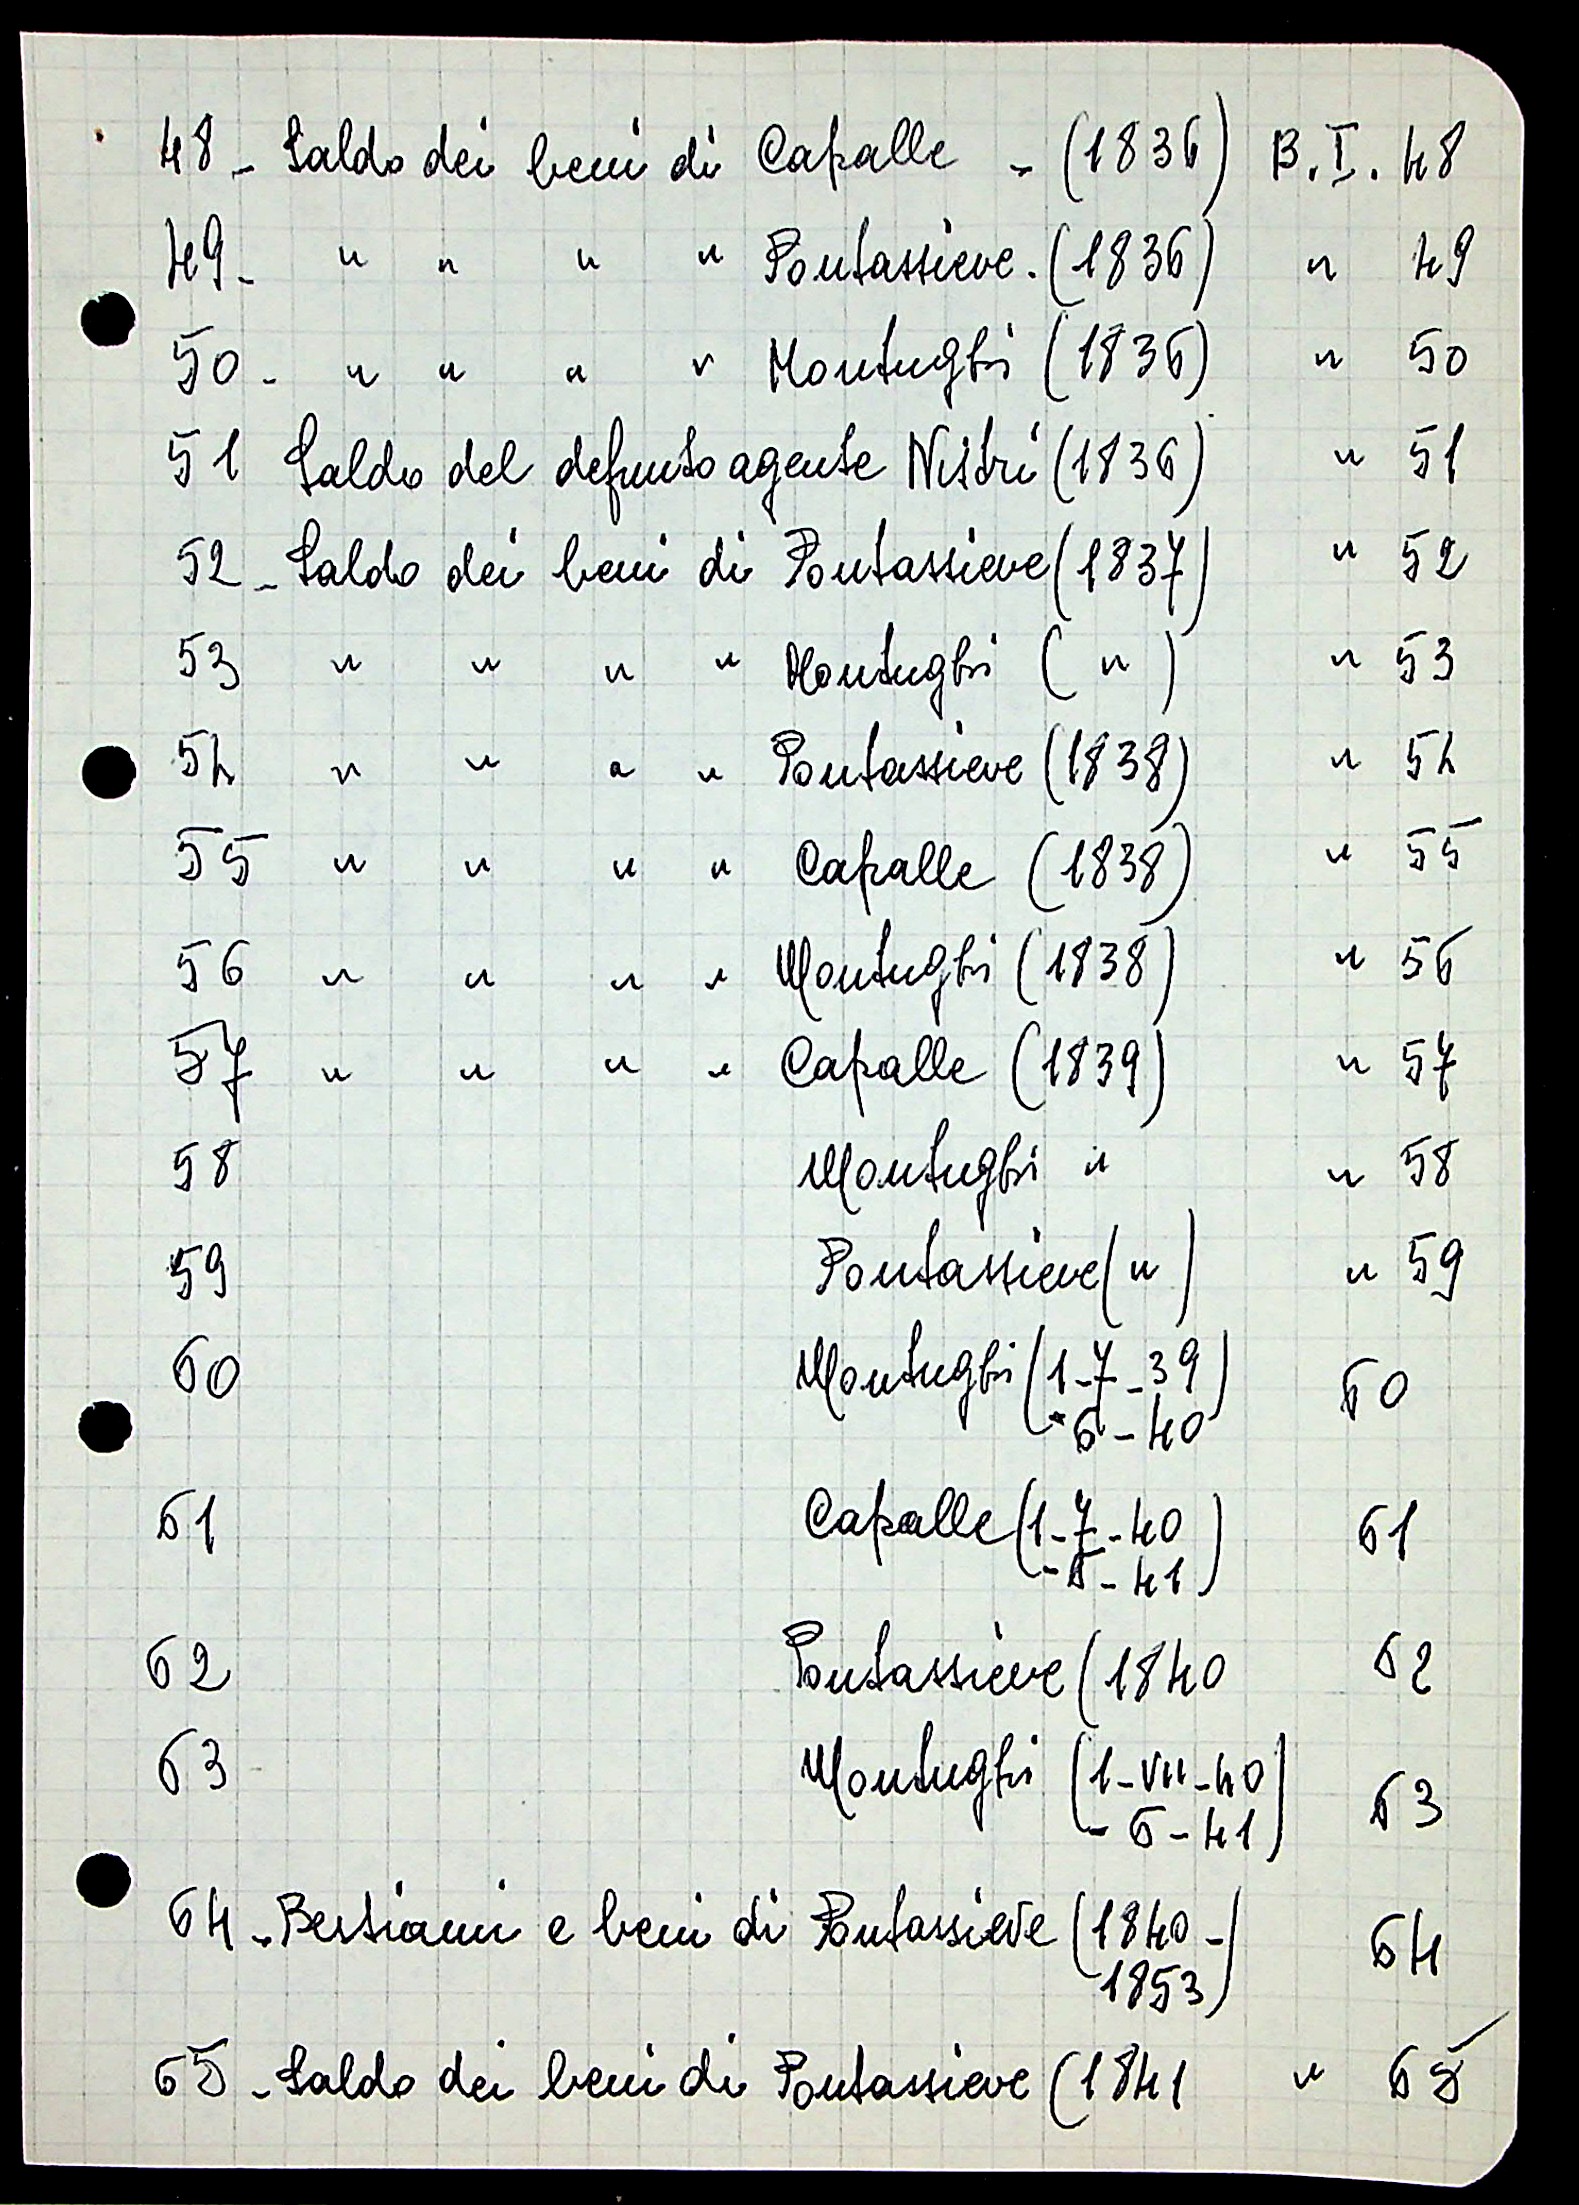 48 - Saldo dei beni di Capalle - (1836) B.I. 48
49 - " " " " Pontassieve. (1836) " 49
50 - " " " " Montughi (1836) " 50
51 Saldo del defunto agente Nistri (1836) " 51
52 - Saldo dei beni di Pontassieve (1837) " 52
53 " " " " Montughi ( " ) " 53
54 " " " " Pontassieve (1838) " 54
55 " " " " Capalle (1838) " 55
56 " " " " Montughi (1838) " 56
57 " " " " Capalle (1839) " 57
58 Montughi " " 58
59 Pontassieve ( " ) " 59
60 Montughi (1-7-39 60
- 6 - 40)
61 Capalle (1-7-40 61
- 6 - 41)
62 Pontassieve (1840 62
63 Montughi (1-VII-40 63
- 6 - 41)
64 - Bestiami e beni di Pontassieve (1840 - 64
1853)
65 - Saldo dei beni di Pontassieve (1841 " 65